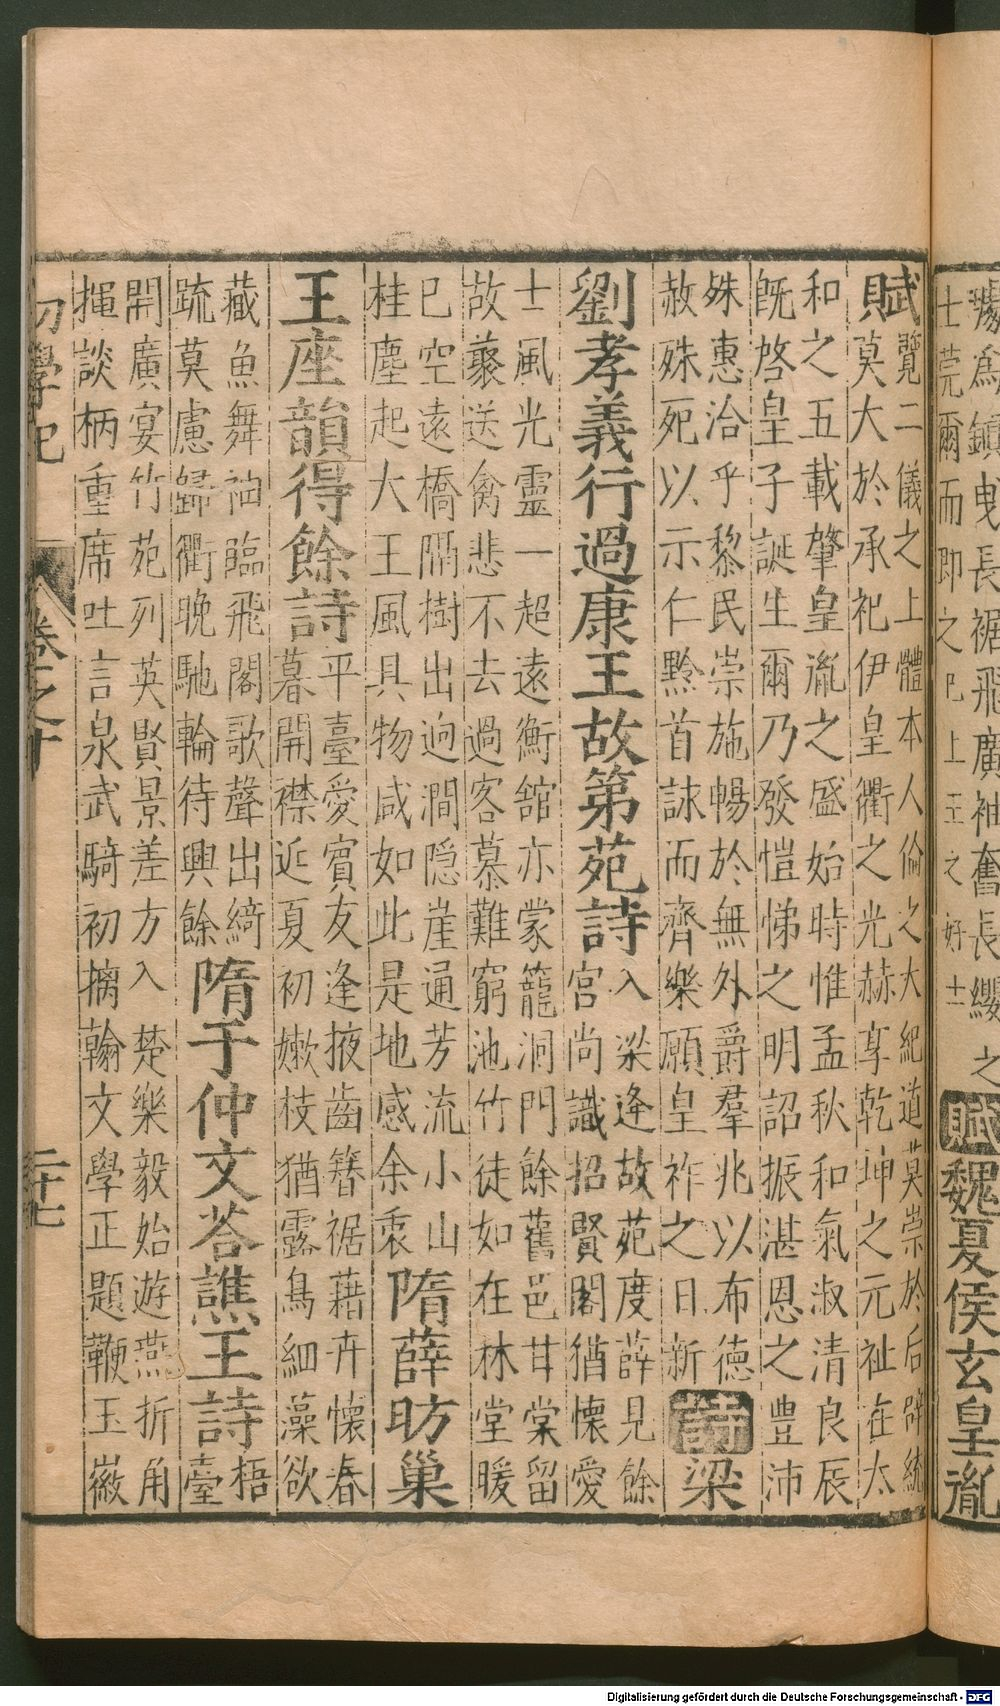 為鎮曳長裾飛廣袖奮長纓之
士莞爾而即之巴上王之好士
賦魏夏侯玄皇胤
賦
覽二儀之上體本人倫之大紀道莫崇於后辟統
莫大於承祀伊皇衢之光赫享乾坤之元祉在太
和之五載肇皇胤之盛始時惟孟秋和氣淑清良辰
既啓皇子誕生爾乃發愷悌之明詔振湛恩之豊沛
殊惠洽乎黎民崇施暢於無外爵羣兆以布德
赦殊死以示仁黔首詠而齊樂願皇祚之日新
詩梁
劉孝義行過康王故第苑詩
入梁逢故苑度薛見餘
宮尚識招賢閣猶懷愛
士風光靈一超遠衡舘亦蒙籠洞門餘舊邑甘棠留
故藂送禽悲不去過客慕難窮池竹徒如在林堂暖
已空遠橋隔樹出迥澗隱崖通芳流小山
桂塵起大王風具物咸如此是地感余衷
隋薛昉巢
王座韻得餘詩
平臺愛賓友逢掖齒簪裾藉卉懷春
暮開襟近夏初嫩枝猶露鳥細藻欲
藏魚舞袖臨飛閣歌聲出綺
疏莫慮歸衢晚馳輪待興餘
隋于仲文荅譙王詩
梧
臺
開廣宴竹苑列英賢景差方入楚樂毅始遊燕折角
揮談柄重席吐言泉武騎初摛翰文學正題鞭玉徽
初學記 卷之十 二十七
Digitalisierung gefördert durch die Deutsche Forschungsgemeinschaft - DFG